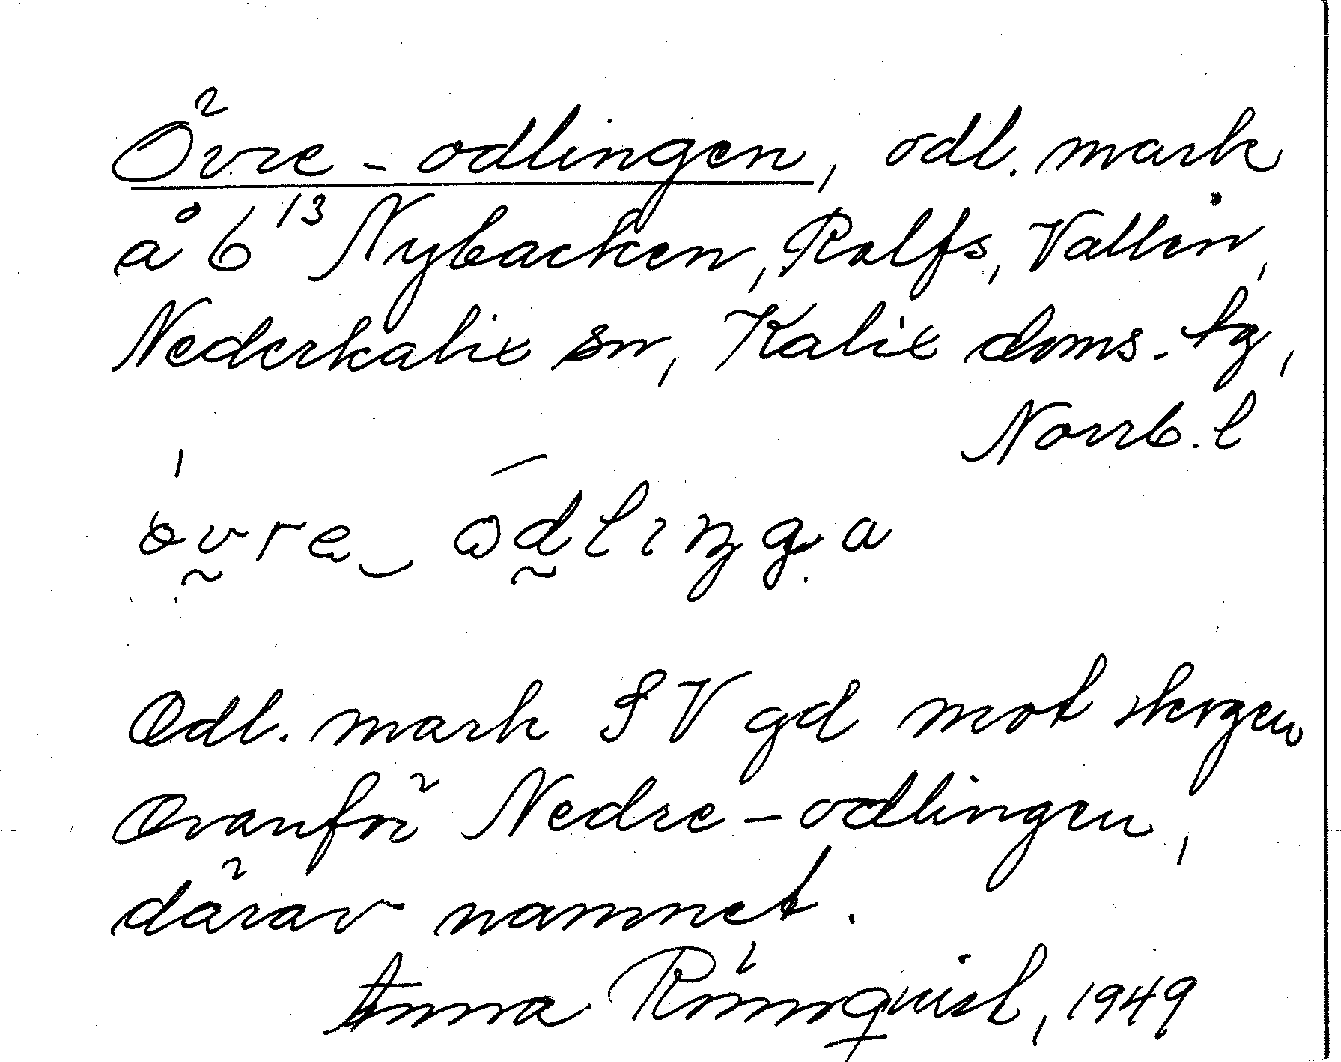 Övre-odlingen, odl. mark
å 6¹³ Nybacken, Rolfs, Vallen,
Nederkalix sn, Kalix doms. tg,
Norrb. l
övre odlinga
Odl. mark SV gd mot skogen
Ovanför Nedre-odlingen,
därav namnet.
Anna Rönnquist, 1949